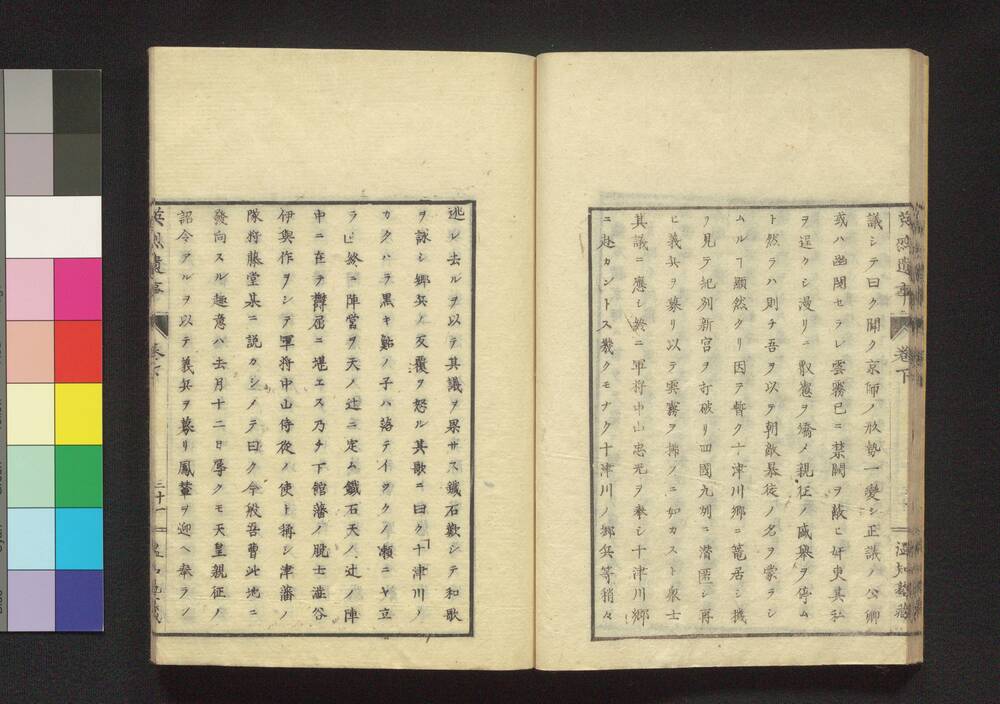 英烈遺事
卷下
温知
議シテ曰ク聞ク京師ノ形勢一變シ正議ノ公卿
或ハ幽閉セラレ雲霧已ニ禁闕ヲ蔽ヒ奸吏其私
ヲ逞クシ漫リニ敕憲ヲ矯メ親征ノ盛擧ヲ停ム
ト然ラハ則チ吾ヲ以テ朝敵暴徒ノ名ヲ蒙ラシ
ムルヿ顯然タリ因テ暫ク十津川郷ニ篭居シ機
ヲ見テ紀州新宮ヲ打破リ四國九州ニ潜匿シ再
ヒ義兵ヲ募リ以テ雲霧ヲ拂ノニ如カスト衆士
其議ニ應シ終ニ軍將中山忠光ヲ奉シ十津川郷
ニ赴カントス幾クモナク十津川ノ郷兵等稍々
逃レ去ルヲ以テ其議ヲ果サス鐵石歎シテ和歌
ヲ詠シ郷兵ノ反覆ヲ怒ル其歌ニ曰ク「十津川ノ
カクハラ黒キ鮎ノ子ハ落テイヲクノ瀬ニヤ立
ラン終ニ陣營ヲ天ノ辻ニ定ム鐵石天ノ辻ノ陣
中ニ在テ欝屈ニ堪エス乃チ下館藩ノ脱士澁谷
伊與作ヲシテ軍將中山侍從ノ使ト稱シ津藩ノ
隊將藤堂某ニ説カシメテ曰ク今般吾曹此地ニ
發向スル趣意ハ去月十二日辱クモ天皇親征ノ
詔令アルヲ以テ義兵ヲ募リ鳳輦ヲ迎ヘ奉ラン
英烈遺事
卷下
三十一